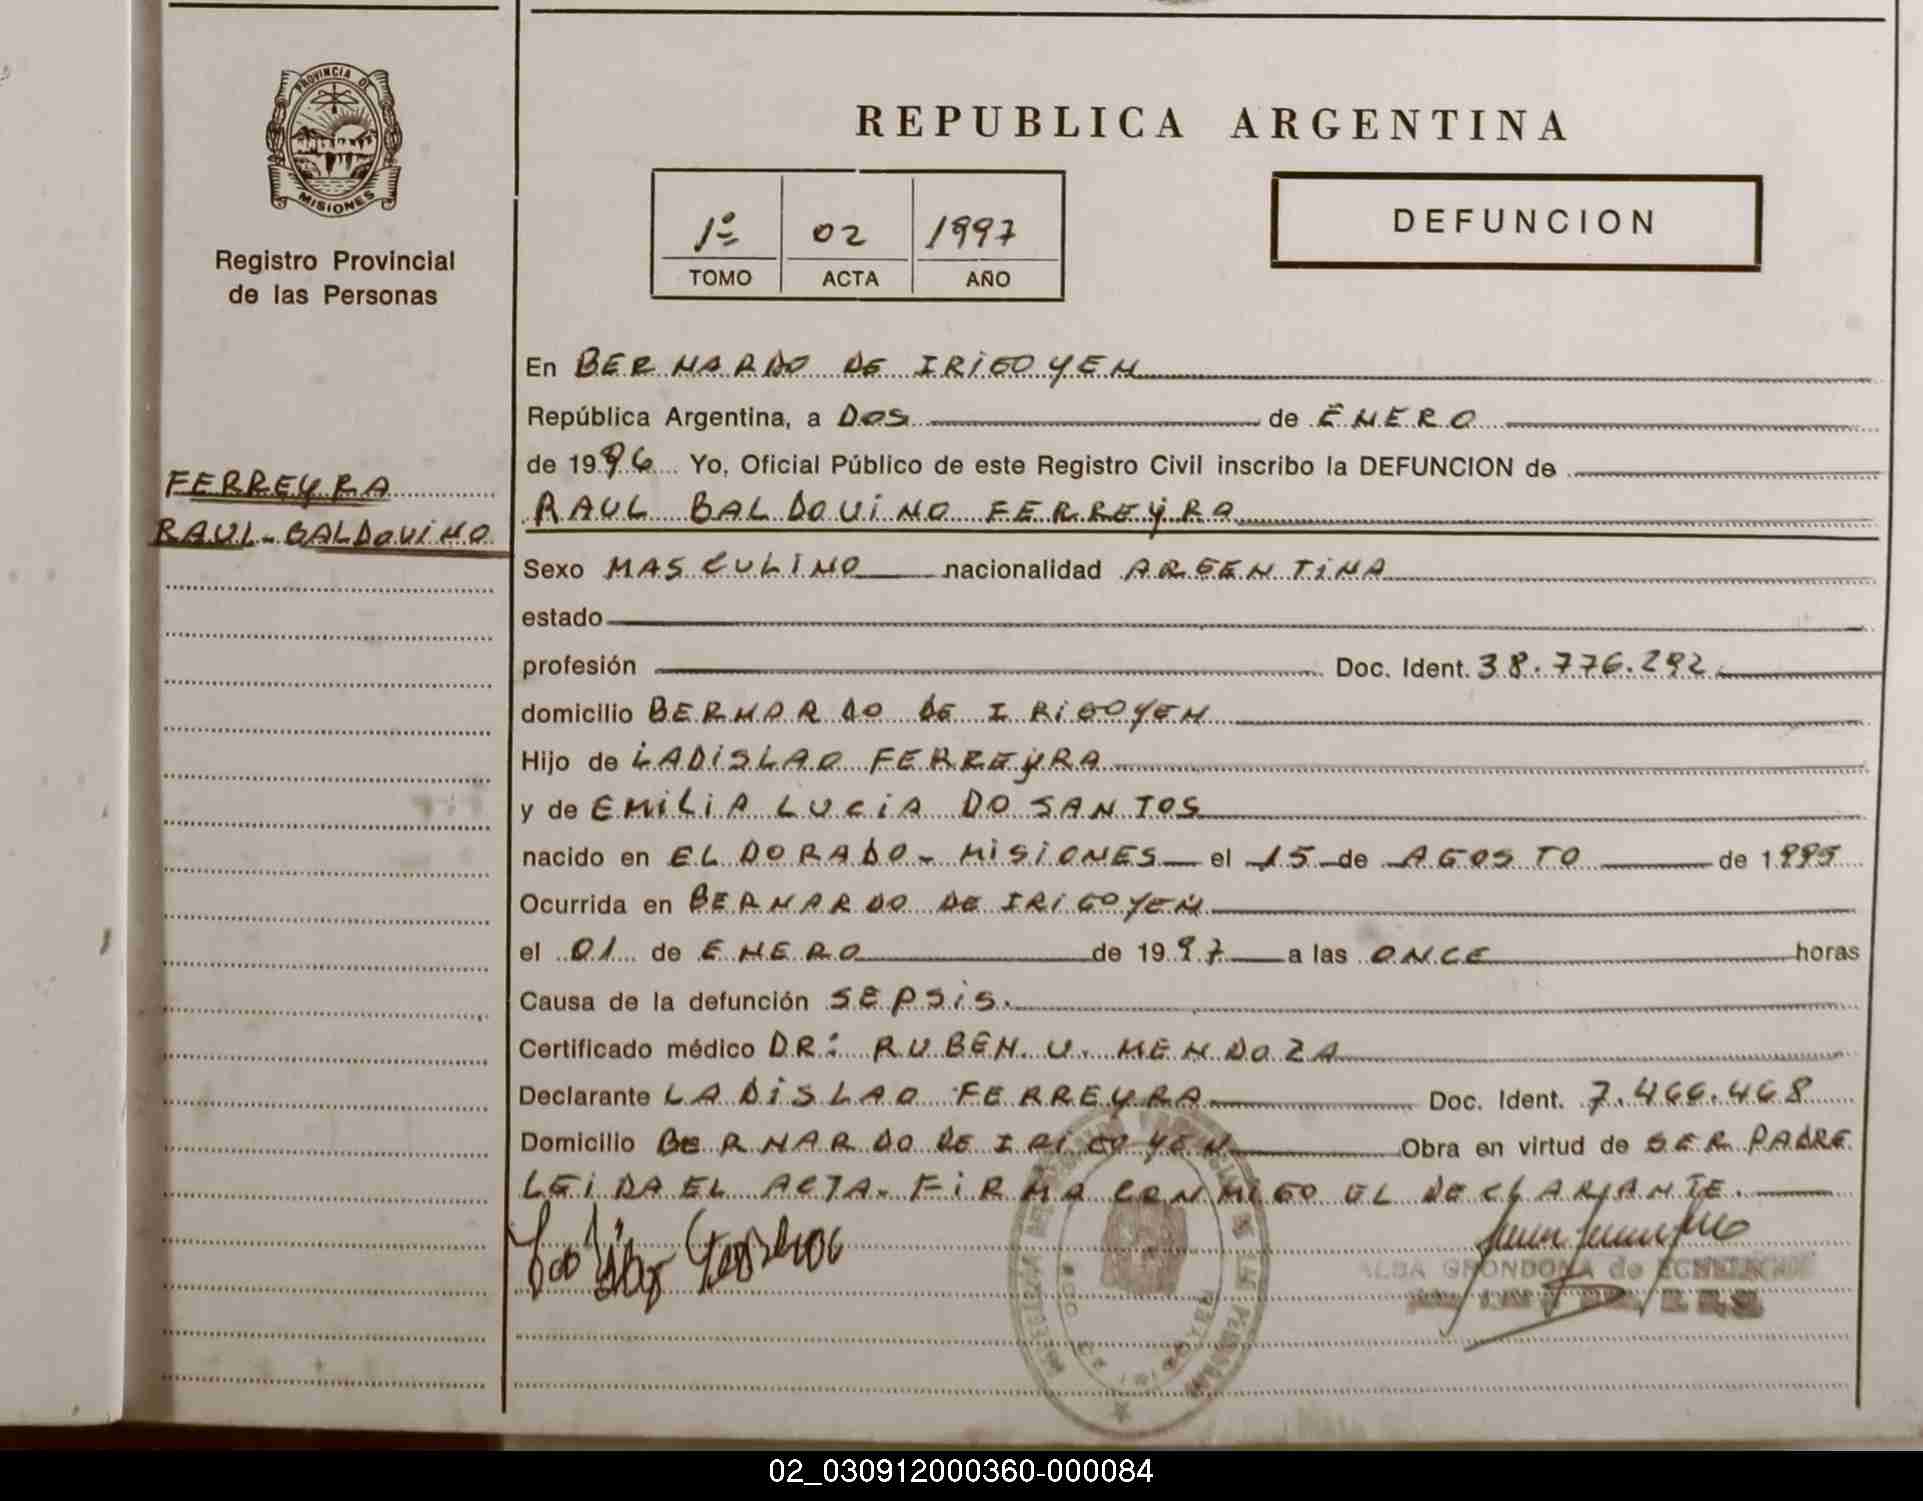 PROVINCIA DE
MISIONES
Registro Provincial
de las Personas
FERREYRA
RAUL-BALDOUINO
REPUBLICA ARGENTINA
1º 02 1997
TOMO ACTA AÑO
DEFUNCION
En BERNARDO DE IRIGOYEN
República Argentina, a DOS de ENERO
de 1996 Yo, Oficial Público de este Registro Civil inscribo la DEFUNCION de
RAUL BALDOUINO FERREYRA
Sexo MASCULINO nacionalidad ARGENTINA
estado
profesión Doc. Ident. 38.776.292.
domicilio BERNARDO DE IRIGOYEN
Hijo de LADISLAO FERREYRA
y de EMILIA LUCIA DO SANTOS
nacido en ELDORADO- MISIONES el 15 de AGOSTO de 1995
Ocurrida en BERNARDO DE IRIGOYEN
el 01 de ENERO de 1997 a las ONCE horas
Causa de la defunción SEPSIS.
Certificado médico DR: RUBEN U. MENDOZA
Declarante LADISLAO FERREYRA Doc. Ident. 7.466.468
Domicilio BERNARDO DE IRIGOYEN Obra en virtud de SER PADRE
LEIDA EL ACTA. FIRMA CONMIGO EL DECLARANTE.
ALBA GRONDONA de
02_030912000360-000084